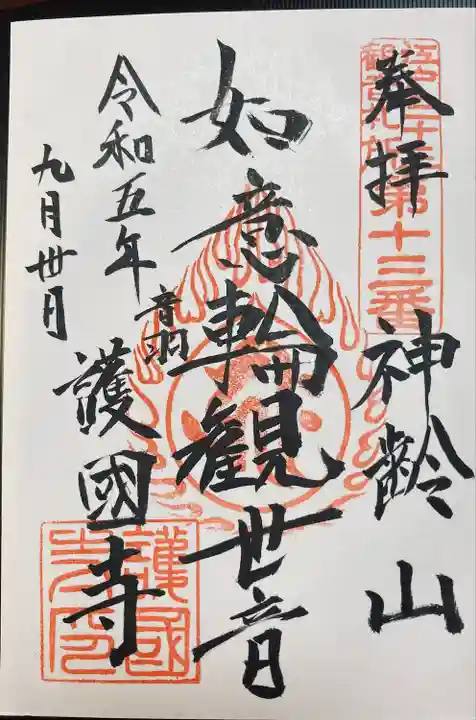 奉拝
神齢山
如意輪觀世音
音羽
護國寺
令和五年
九月丗日
第十三番
護國